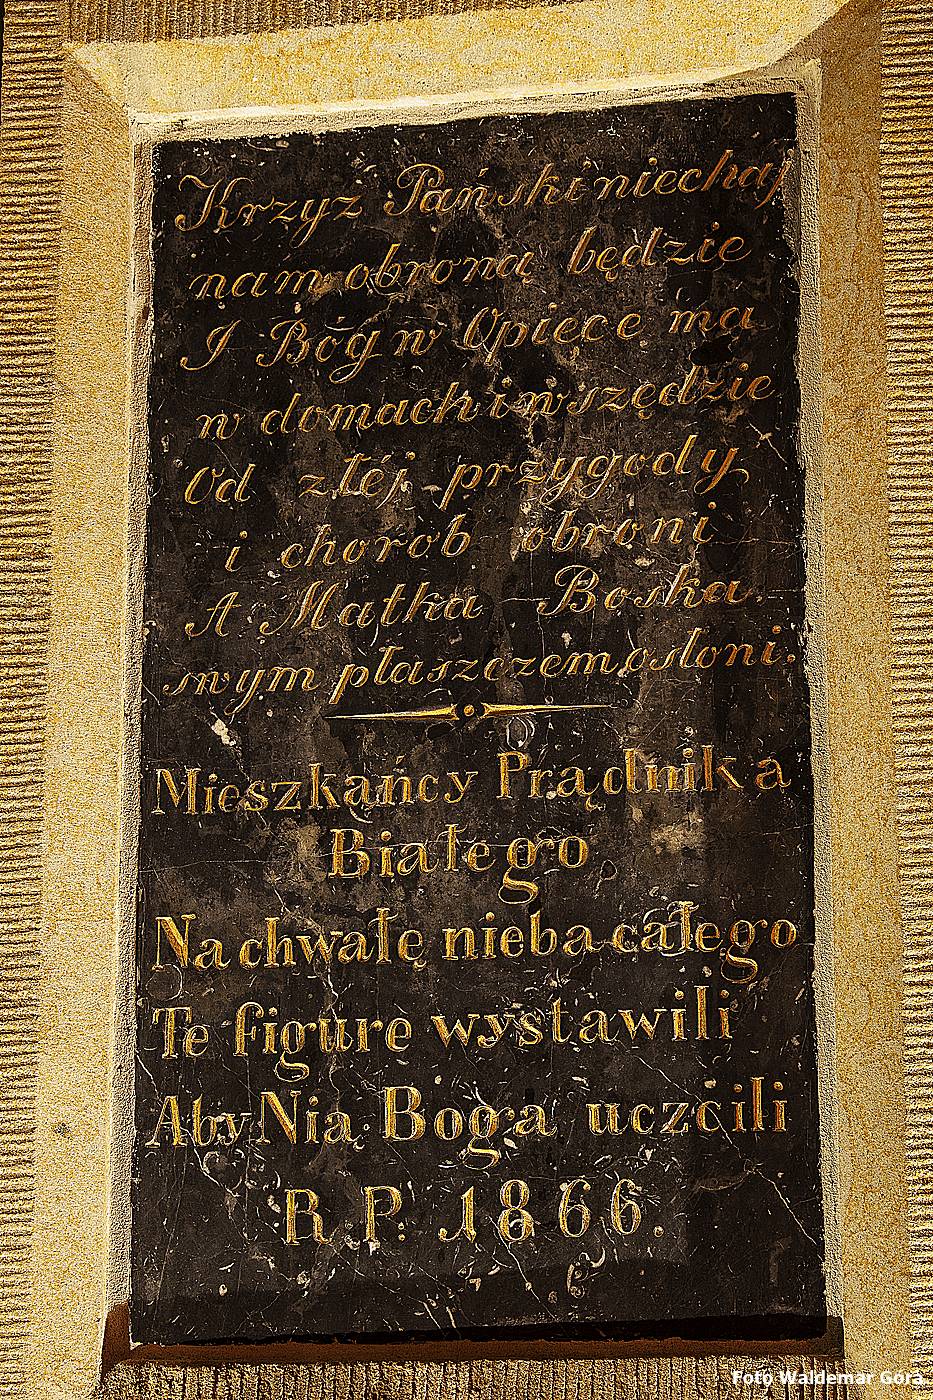 Krzyż Pański niechaj
nam obroną będzie
I Bóg w Opiece ma
w domach i wszędzie
Od złéj przygody
i chorob obroni
A Matka Boska
swym płaszczem osłoni.
Mieszkańcy Prądnika
Białego
Na chwałę nieba całego
Te figurę wystawili
Aby Nią Boga uczcili
R. P. 1866.
Foto Waldemar Gorą